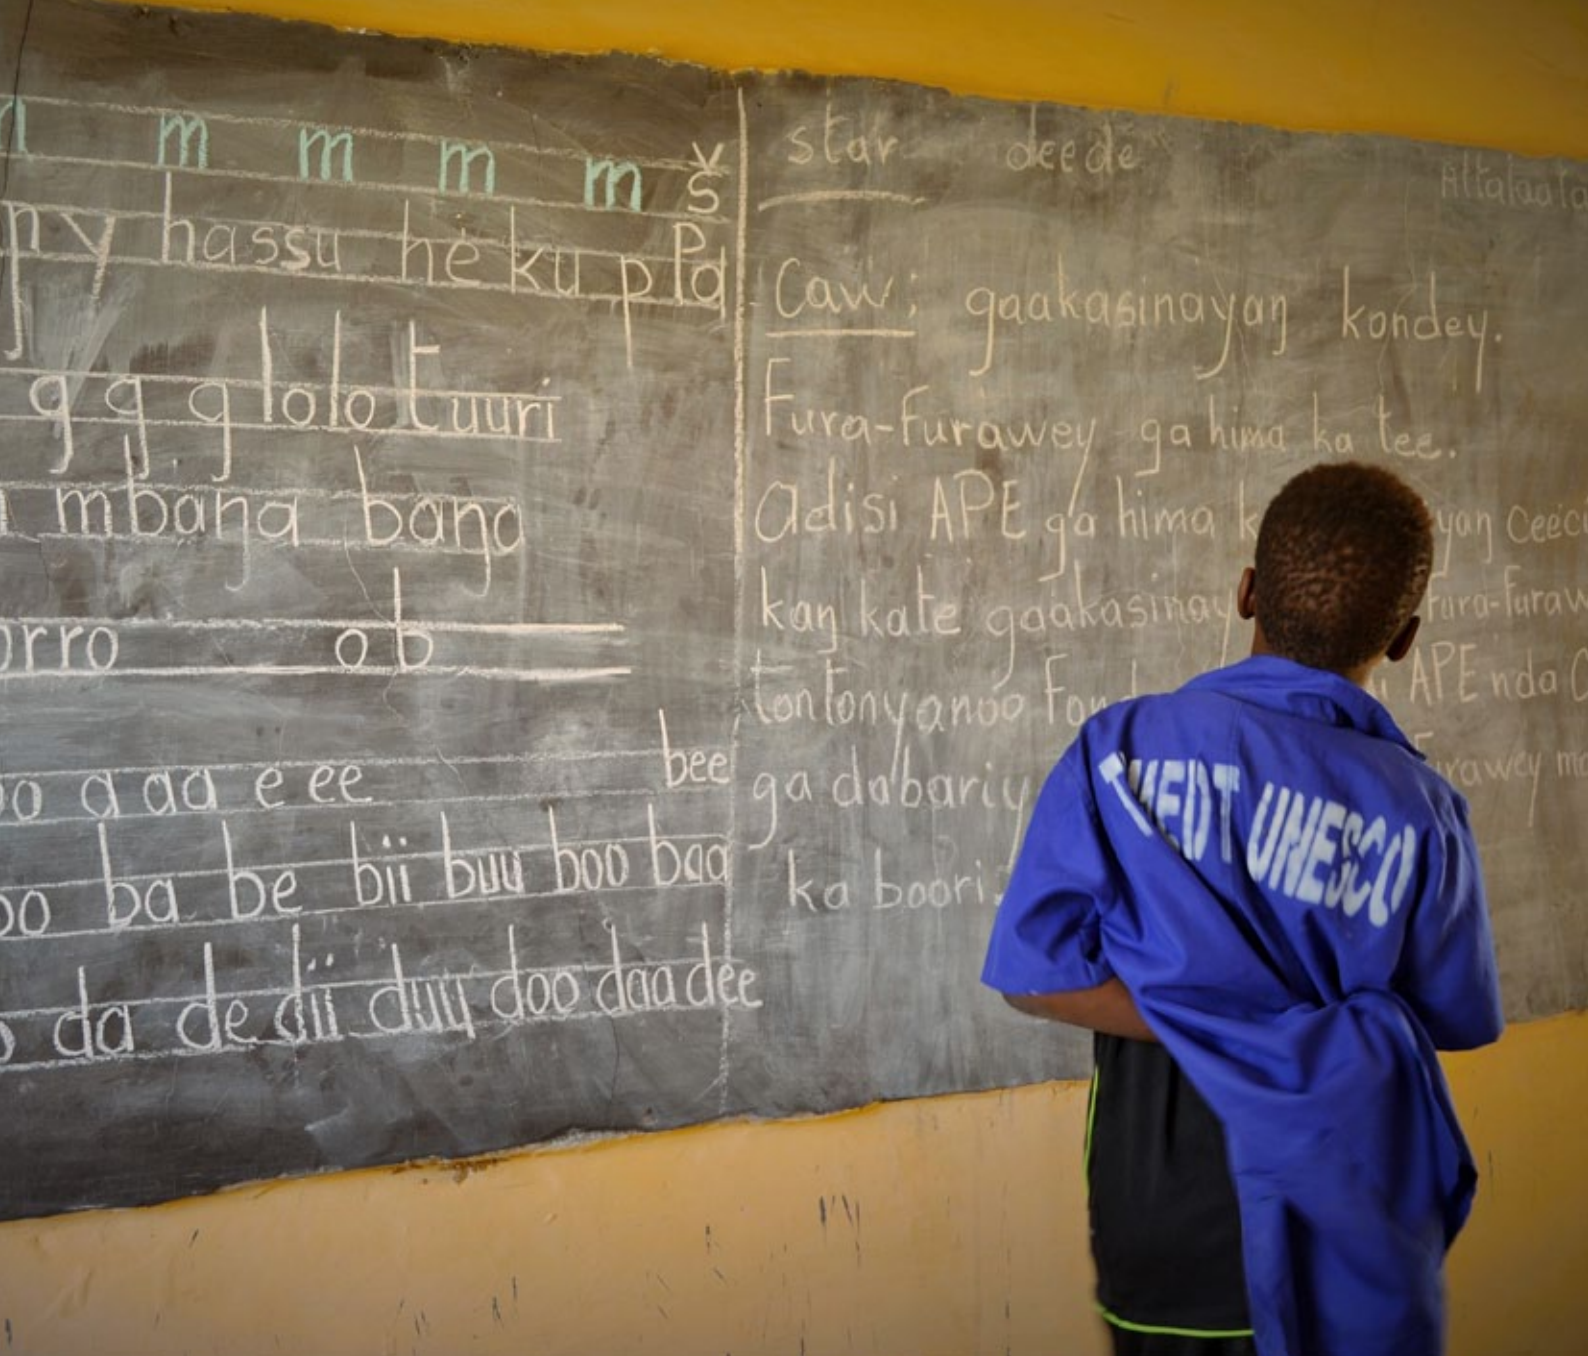 m m m m š
ny hassu he ku p Pa
g g g lolo tuuri
mbaŋa baŋa
orro o b
oo a aa e ee bee
bo ba be bii buu boo baa
da de dii duu doo daa dee
star deede
Caw: gaakasinayaŋ kondey.
Fura-Furawey ga hima ka tee.
adisi APE ga hima
kaŋ kate gaakasinay
tontonyanoo
APE nda
ga dabariy
ka boori.
TMEDT UNESCO